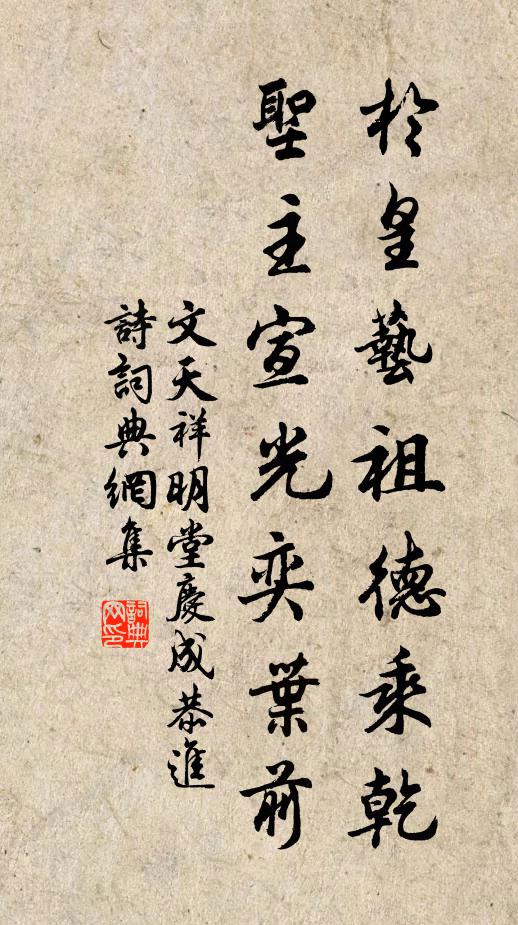 於皇藝祖德乘乾
聖主宣光奕葉前
文天祥明堂慶成恭進
詩詞典網集
詞典網印